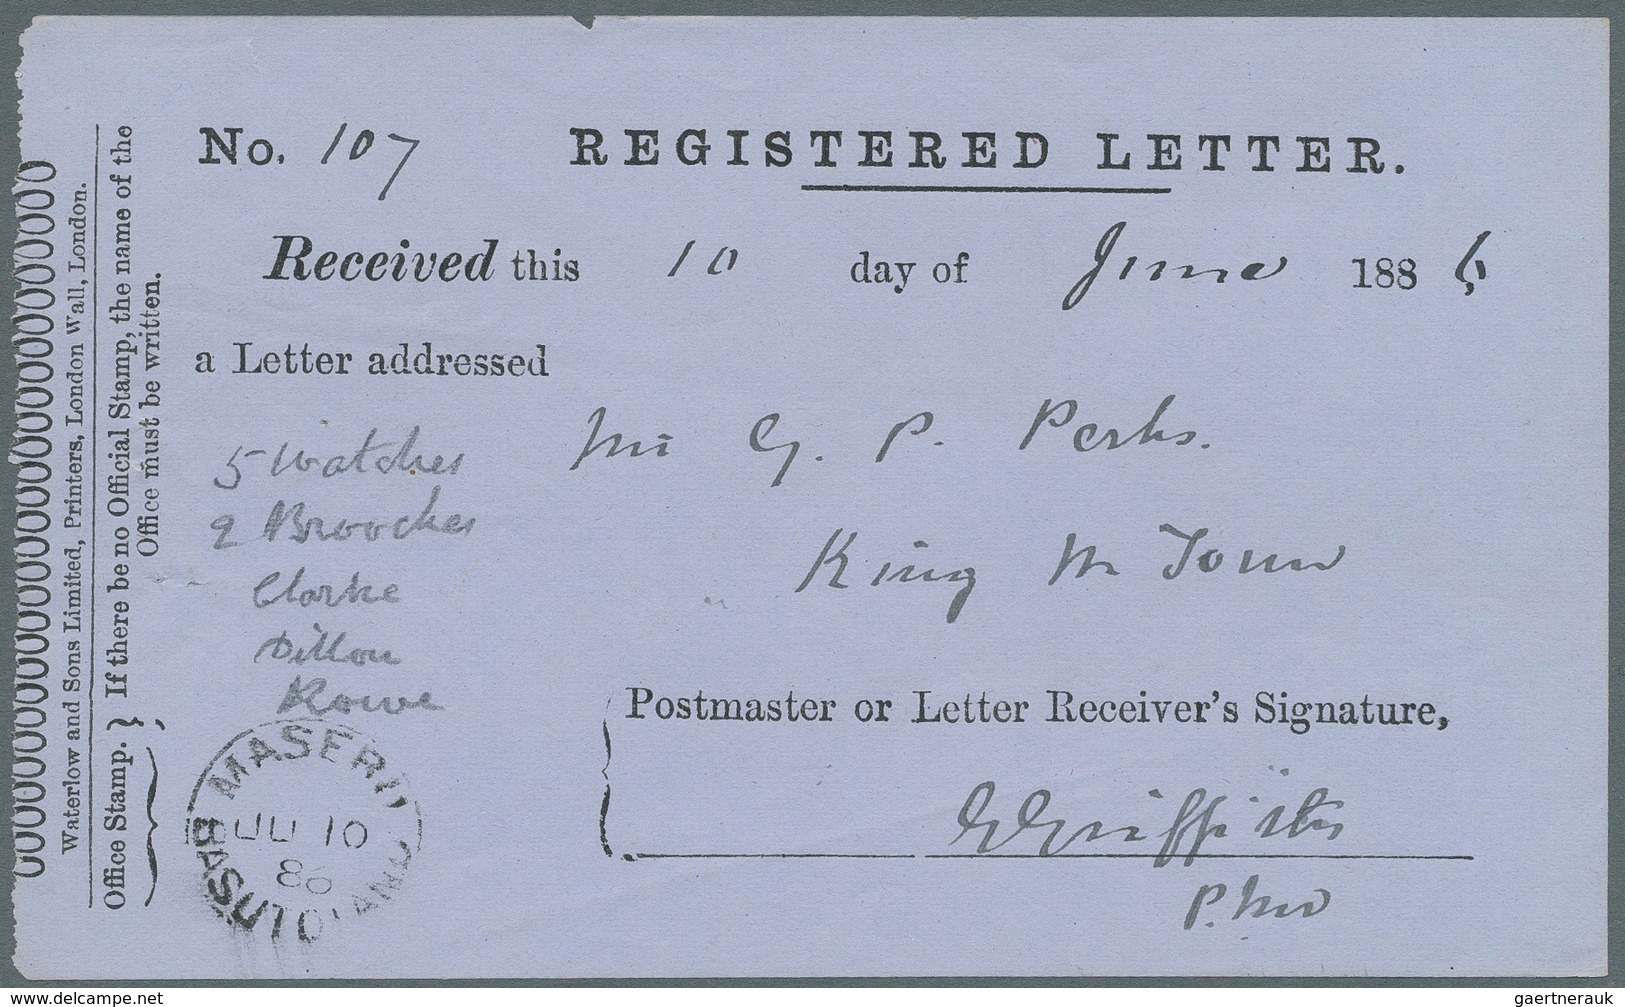 No. 107 REGISTERED LETTER.
Received this 10 day of June 1886
a Letter addressed
Mr G. P. Perks.
King Wm Town
5 Watches
2 Brooches
Clarke
Dillon
Rowe
Postmaster or Letter Receiver's Signature,
Griffiths
MASERU
JU 10
86
BASUTOLAND
Office Stamp. } If there be no Official Stamp, the name of the
Office must be written.
Waterlow and Sons Limited, Printers, London Wall, London.
www.delcampe.net
gaertnerauk